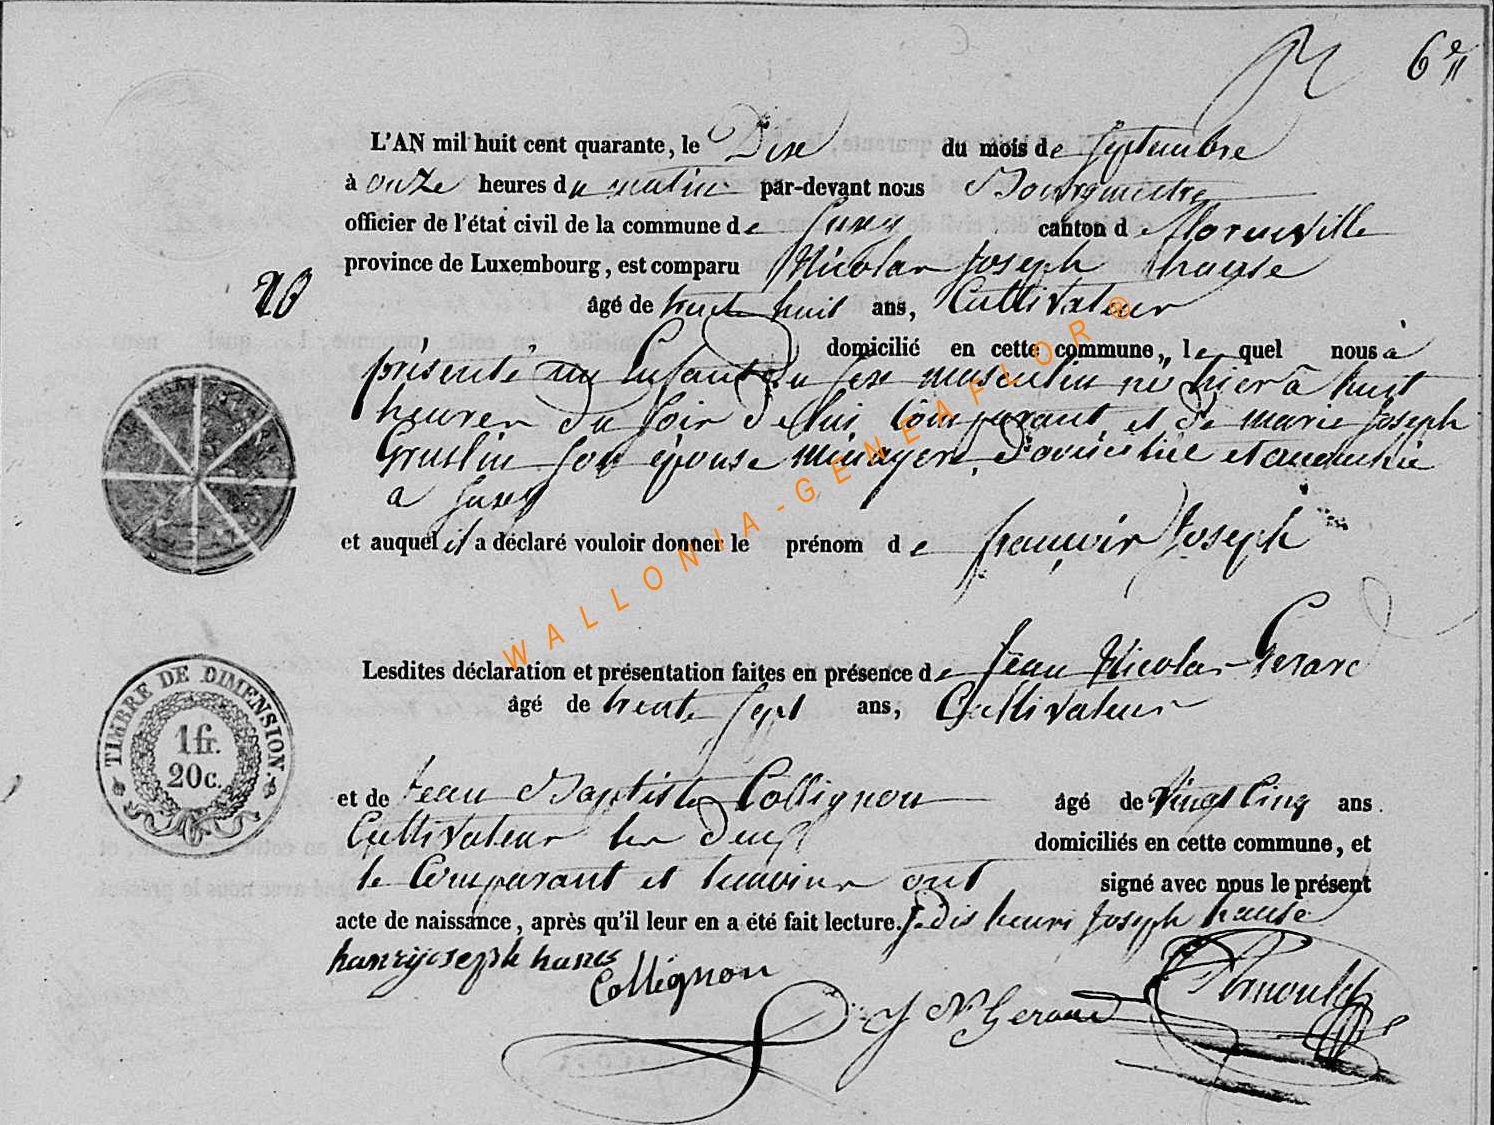 6e
L'AN mil huit cent quarante, le Dix du mois de Septembre
à onze heures du matin par-devant nous Bourgmestre
officier de l'état civil de la commune de Suxy canton de florenville
province de Luxembourg, est comparu Nicolas Joseph hause
20
âgé de trente huit ans, Cultivateur
domicilié en cette commune, le quel nous à
présenté un Enfant du sexe masculin né hier à huit
heures du soir de lui Comparant et de marie Joseph
Gruslin son épouse ménagere domiciliée et accouchée
a Suxy
et auquel il a déclaré vouloir donner le prénom de françois Joseph
Lesdites déclaration et présentation faites en présence de Jean Nicolas Gerard
âgé de trente sept ans, Cultivateur
et de Jean Baptiste Collignon âgé de vingt Cinq ans.
Cultivateur les deux domiciliés en cette commune, et
le Comparant et temoins ont signé avec nous le présent
acte de naissance, après qu'il leur en a été fait lecture. Je dis henri Joseph hause
hanry joseph
Collignon
J N Gerard
Arnould
TIMBRE DE DIMENSION.
1 fr.
20 c.
WALLONIA-GENEAFLOR®